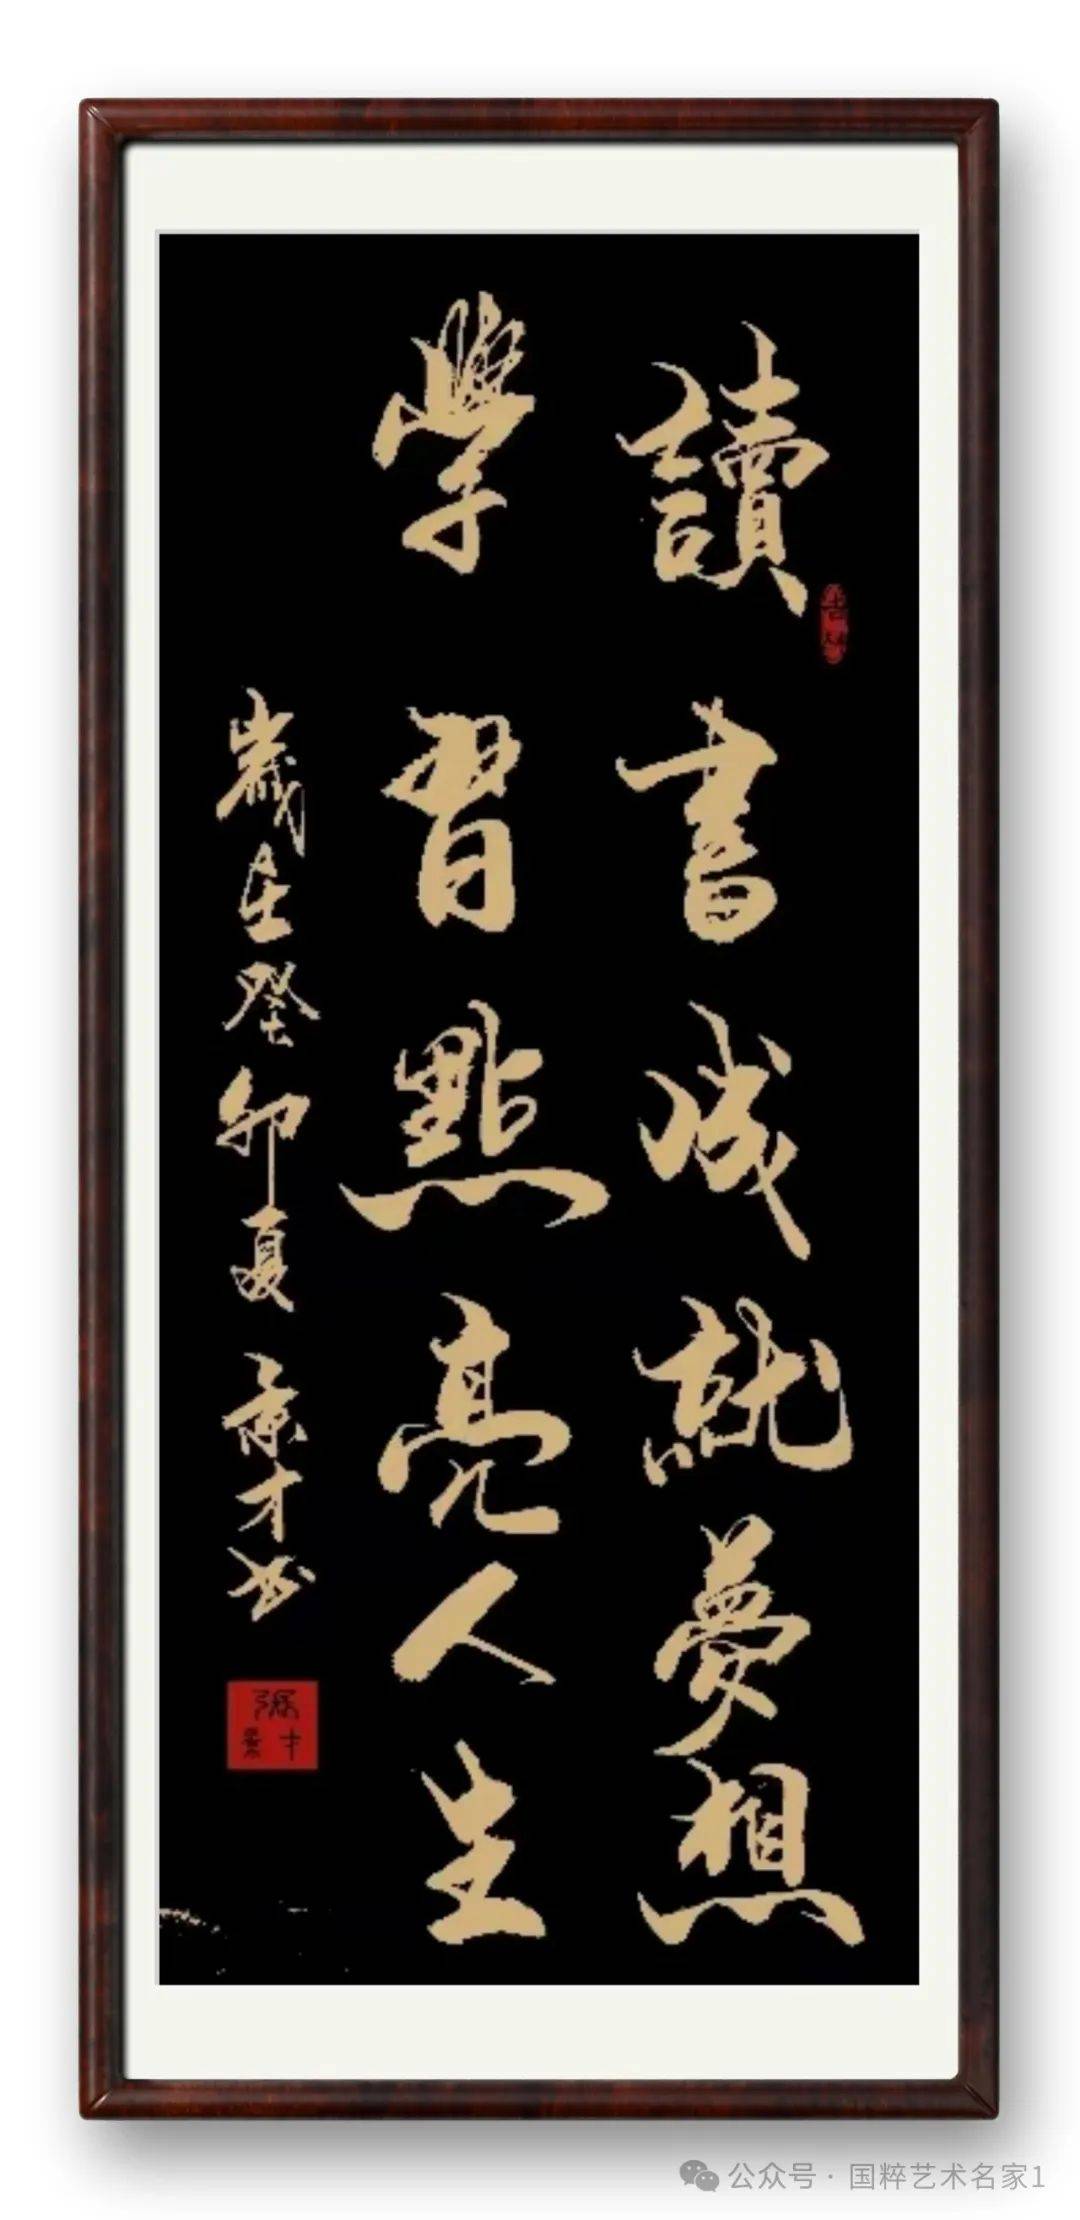 讀書成就夢想
學習點亮人生
歲在癸卯夏 景才书
張景才
公众号 · 国粹艺术名家1